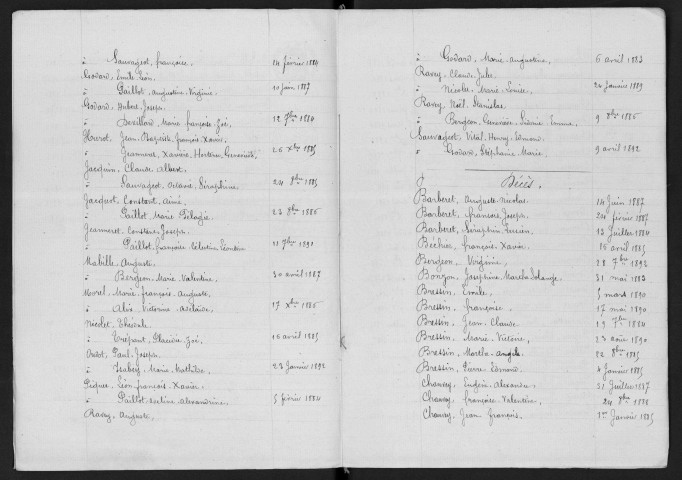 à Sauvageot, françoise, 14 février 1884
Godard, Emile Léon,
à Paillot, Augustine Virginie 10 juin 1887
Godard, Hubert Joseph,
à Marie françoise Zoé, 12 9bre 1880
Jean Baptiste françois Xavier,
à Jeanneret, Xavière Hortense 26 Xbre 1885
Jacquin, Claude Albert,
à Sauvageot, Séraphine 24 9bre 1885
Jacquot, Constant Aimé,
à Paillot Marie Pélagie 23 8bre 1886
Jeanneret, Constant Joseph,
Paillot, françoise Célestine Léontine 21 9bre 1891
Mabille, Auguste,
à Bergeon, Marie Valentine, 30 avril 1887
Morel, Marie françois Auguste,
à Alix, Victorine Adelaïde 17 Xbre 1886
Nicolet,
à Trépant, Placidie Zoé, 16 avril 1885
Ordot, Paul Joseph,
à Isabey, Marie Mathilde, 23 Janvier 1892
Léon françois Xavier,
à Paillot, Alexandrine, 5 février 1884
Ravey, Auguste,
à Godard, Marie Augustine, 6 avril 1883
Ravey, Claude Jules
à Nicolet, Marie Louise, 24 Janvier 1889
Ravey, Noël Stanislas
à Bergeon, Geneviève Emma, 9 8bre 1886
Sauvageot, Vital Henry Edmond
à Godard, Stéphanie Marie, 9 avril 1892
Décès.
Barberet, Auguste Nicolas, 14 Juin 1887
Barberet, françois Joseph, 24 février 1887
Barberet, Séraphin Lucien, 13 Juillet 1884
Béchier, françois Xavier, 16 avril 1885
Bergeon, Virginie, 28 7bre 1892
Bongon, Joséphine 31 mai 1883
Bressin, Emile, 5 mars 1890
Bressin, françoise, 17 mai 1890
Bressin, Jean Claude, 19 1884
Bressin, Marie Victoire, 23 août 1890
Bressin, Martha Angèle 22 8bre 1885
Bressin, Pierre Edmond, 4 Janvier 1885
Charvey, Eugène Alexandre, 31 Juillet 1887
Charvey, françoise Valentine, 24 9bre 1888
Charvey, Jean françois, 1er Janvier 1885